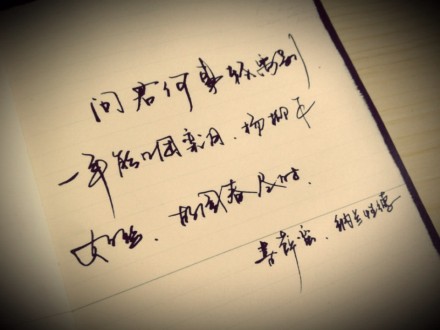 问君何事轻离别.
一年能几团栾月.杨柳乍
如丝.故园春尽时.
菩萨蛮.纳兰性德